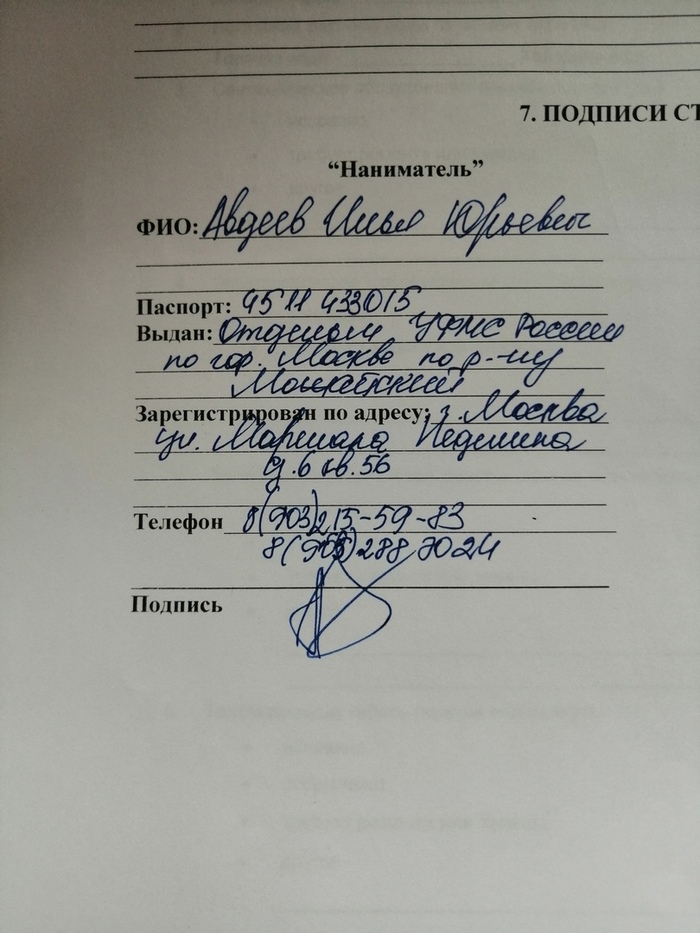 7. ПОДПИСИ СТ
“Наниматель”
ФИО: Авдеев Илья Юрьевич
Паспорт: 4511 433015
Выдан: Отделом УФМС России
по гор. Москве по р-ну
Можайский
Зарегистрирован по адресу: г. Москва
ул. Маршала Неделина
д. 6 кв. 56
Телефон 8(903)215-59-83
8(905)288 7024
Подпись